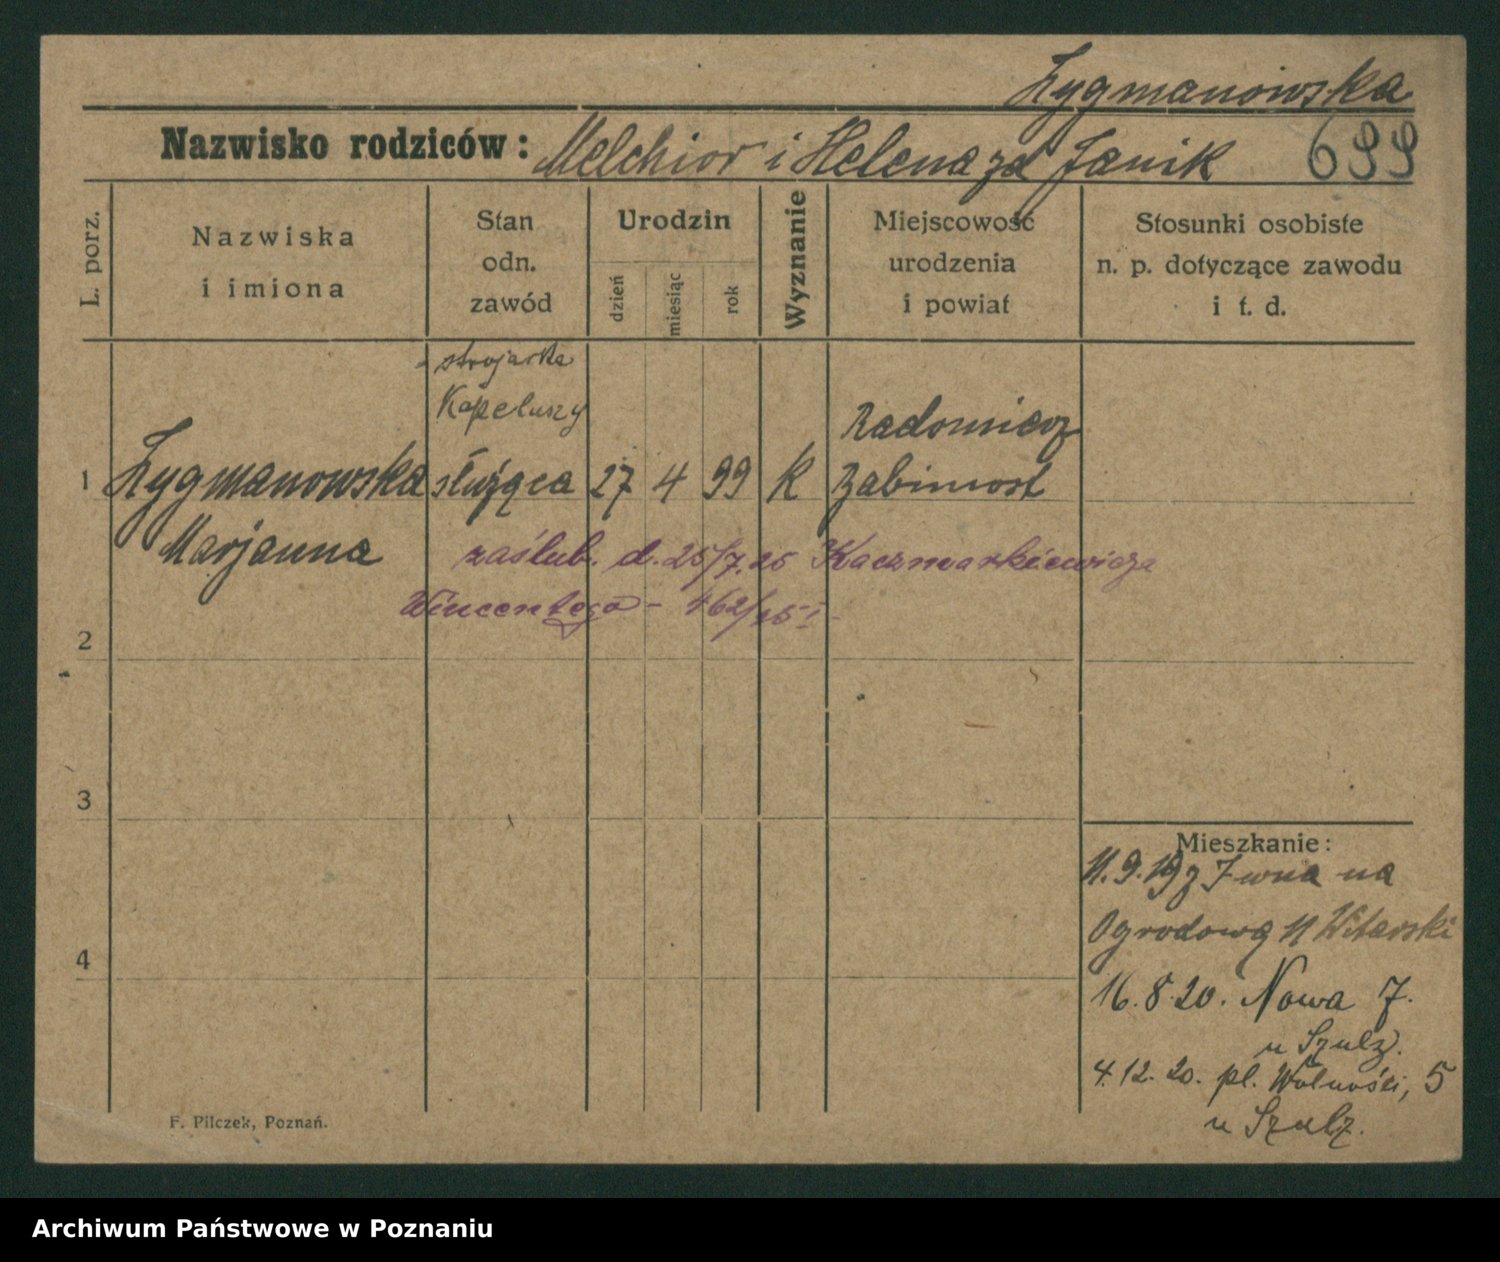 Zygmanowska
Nazwisko rodziców: Melchior i Helena zd Janik 699
L. porz.
Nazwiska
i imiona
Stan
odn.
zawód
Urodzin
dzień
miesiąc
rok
Wyznanie
Miejscowość
urodzenia
i powiat
Stosunki osobiste
n. p. dotyczące zawodu
i t. d.
strojarka
Kapeluszy
Radomicz
1 Zygmanowska służąca 27 4 99 K Babimost
Marjanna
zaślub. d. 25/7.25 Kaczmarkiewicza
Wincentego - 462/25 I
2
3
4
Mieszkanie:
11.9.19 z na
Ogrodową 11
16.8.20. Nowa 7.
u Szulz.
4.12.20. pl. Wolności, 5
u Szulz.
F. Pilczek, Poznań.
Archiwum Państwowe w Poznaniu